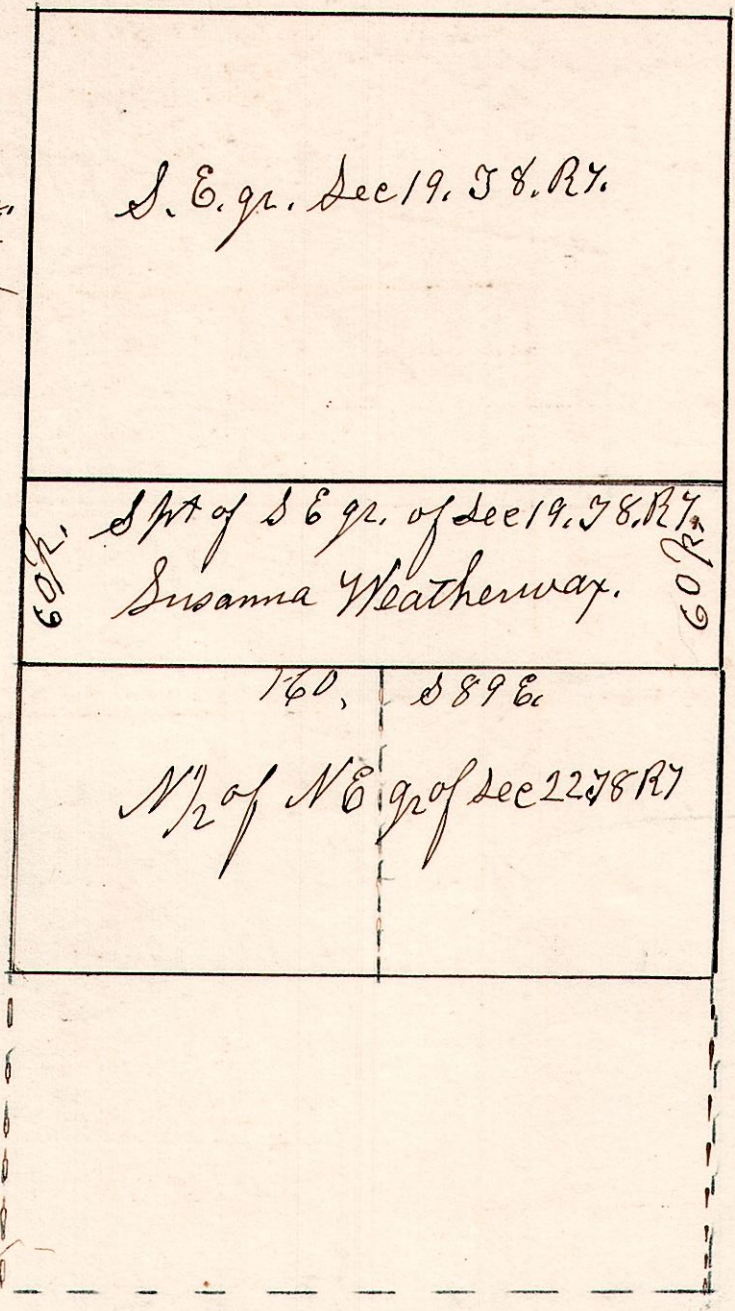 S. E. qr. Sec 19. T 8. R 7.
S pt of S E qr. of Sec 19. T 8. R 7.
60 p.
Susanna Weatherwax.
60 p.
160. S 89 E.
N 1/2 of N E qr of Sec 22 T 8 R 7